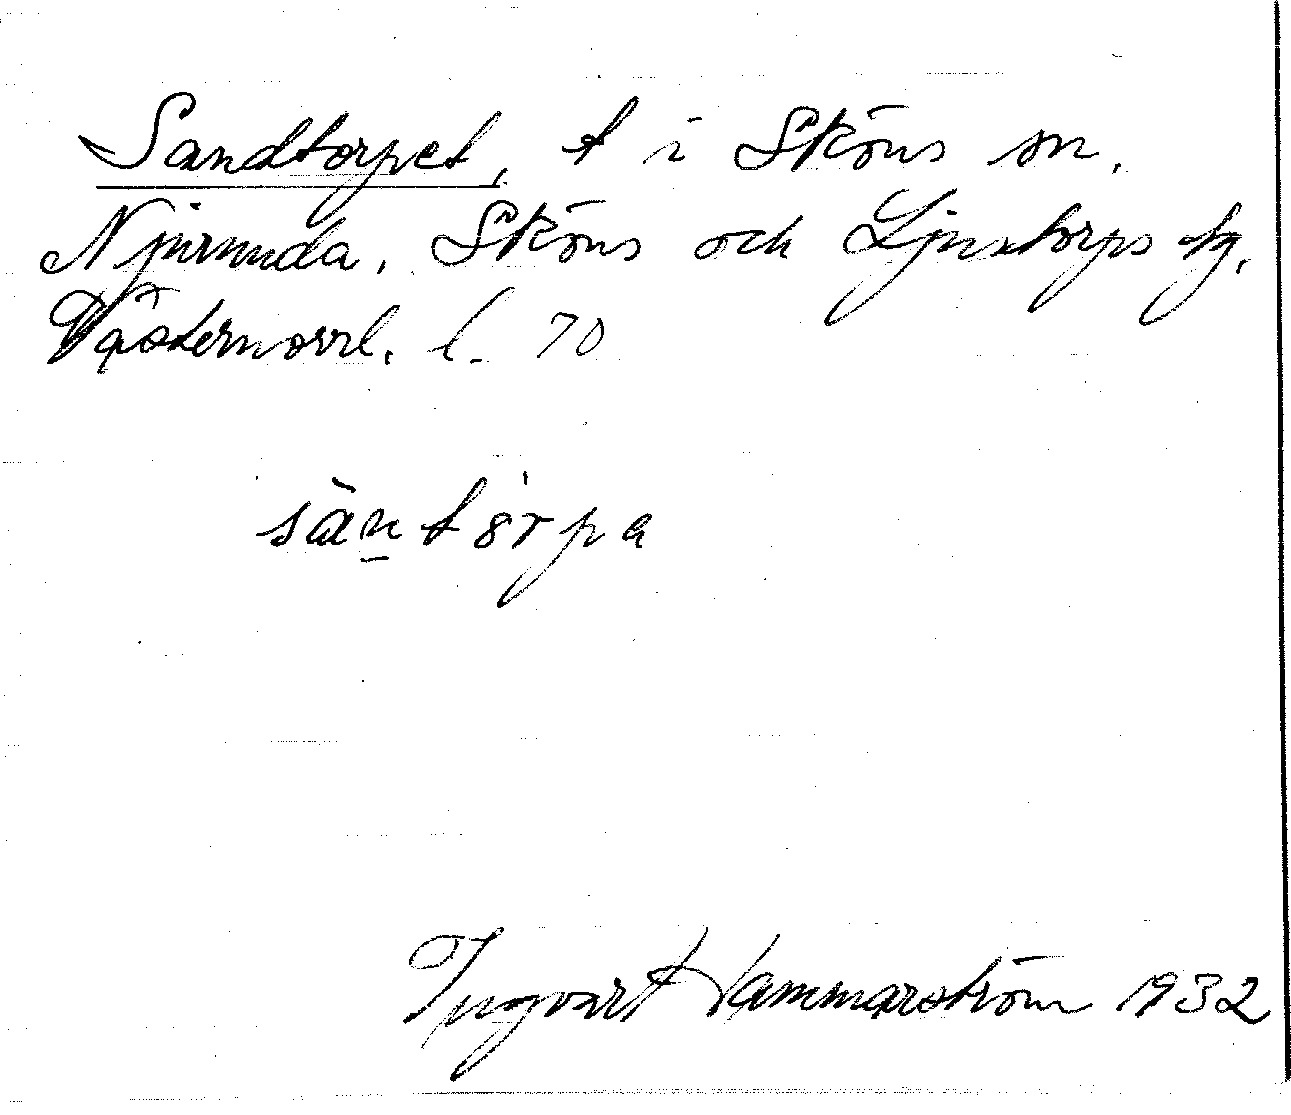 Sandtorpet, t i Sköns sn.
Njurunda, Sköns och Ljustorps tg,
Västernorrl. l. 70
sàn̠tórpa
Ingvart Hammarström 1932